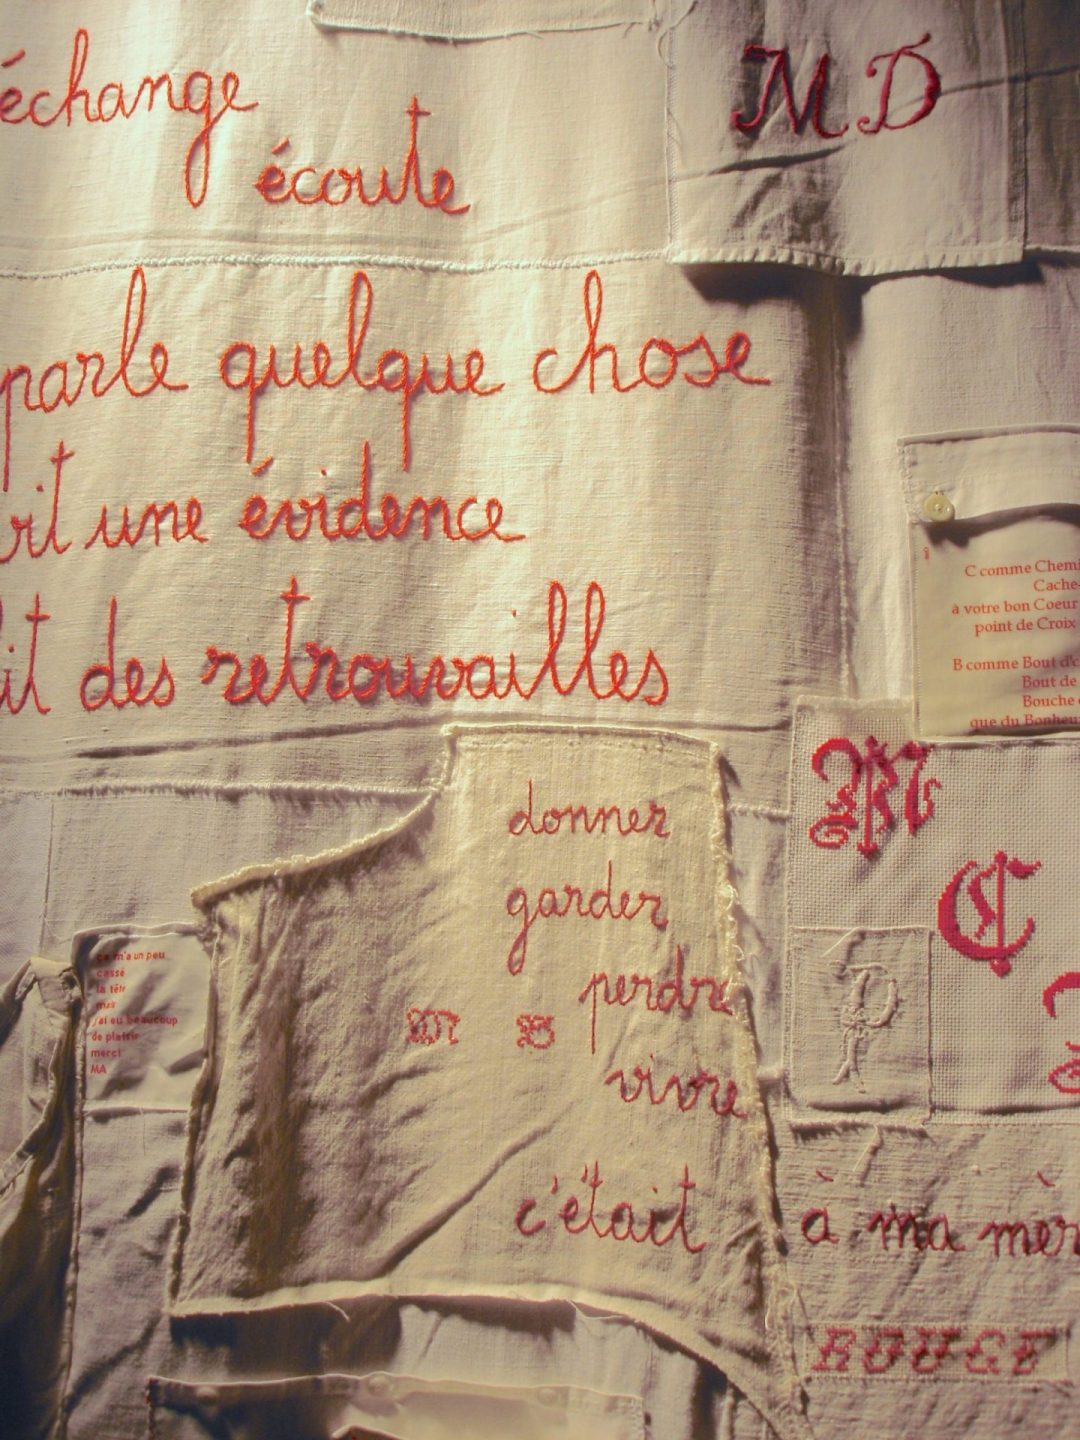 échange
écoute
M D
parle quelque chose
une évidence
des retrouvailles
C comme
Cache-
à votre bon Coeur
point de Croix
B comme Bout
Bout de
Bouche
que du
donner
garder
perdre
vivre
M B
c'était
M
C
P
ça m'a un peu
cassé
la tête
mais
j'ai eu beaucoup
de plaisir
merci
MA
à ma
ROUGE